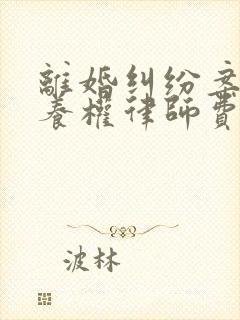 離婚糾紛案
養權律師費
波林